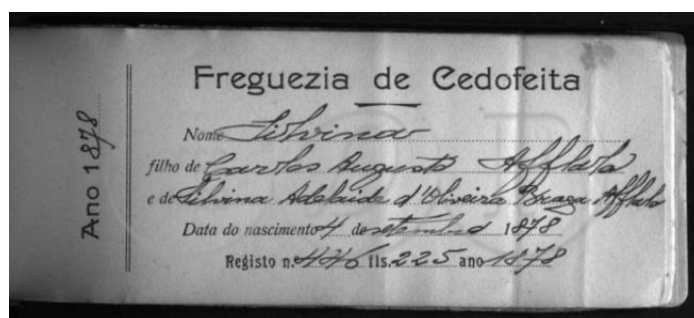 Freguezia de Cedofeita
Ano 1878
Nome Silvina
filho de Carlos Augusto Afflalo
e de Silvina Adelaide d'Oliveira Braga Afflalo
Data do nascimento 4 de setembro 1878
Registo n. 446 fls. 225 ano 1878